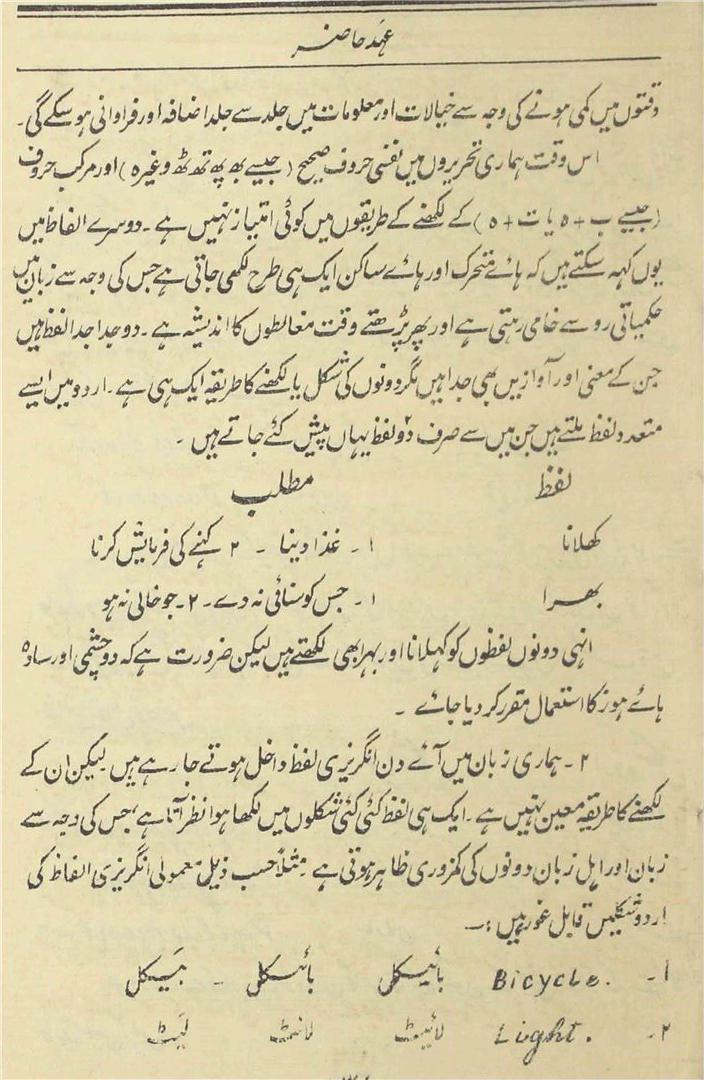 عہد حاضر
وقتوں میں کمی ہونے کی وجہ سے خیالات اور معلومات میں جلد سے جلد اضافہ اور فراوانی ہو سکے گی۔
اس وقت ہماری تحریروں میں نفسی حروف صحیح (جیسے بھ پھ تھ ٹھ وغیرہ) اور مرکب حروف
(جیسے ب + ہ یا ت + ہ) کے لکھنے کے طریقوں میں کوئی امتیاز نہیں ہے۔ دوسرے الفاظ میں
یوں کہہ سکتے ہیں کہ ہائے متحرک اور ہائے ساکن ایک ہی طرح لکھی جاتی ہے جس کی وجہ سے زبان میں
حکمیاتی رو سے خامی رہتی ہے اور پھر پڑھتے وقت مغالطوں کا اندیشہ ہے۔ دو جدا جدا لفظ ہیں
جن کے معنی اور آوازیں بھی جدا ہیں مگر دونوں کی شکل یا لکھنے کا طریقہ ایک ہی ہے۔ اردو میں ایسے
متعدد لفظ ملتے ہیں جن میں سے صرف دو لفظ یہاں پیش کئے جاتے ہیں۔
لفظ مطلب
کھلانا ۱۔ غذا دینا ۔ ۲ کہنے کی فرمایش کرنا
بھرا ۱۔ جس کو سنائی نہ دے۔ ۲۔ جو خالی نہ ہو
انہی دونوں لفظوں کو کہلانا اور بہرا بھی لکھتے ہیں لیکن ضرورت ہے کہ دوچشمی اور سادہ
ہائے ہوز کا استعمال مقرر کر دیا جائے ۔
۲۔ ہماری زبان میں آئے دن انگریزی لفظ داخل ہوتے جا رہے ہیں لیکن ان کے
لکھنے کا طریقہ معین نہیں ہے۔ ایک ہی لفظ کئی کئی شکلوں میں لکھا ہوا نظر آتا ہے، جس کی وجہ سے
زبان اور اہل زبان دونوں کی کمزوری ظاہر ہوتی ہے مثلاً حسب ذیل معمولی انگریزی الفاظ کی
اردو شکلیں قابل غور ہیں:۔
۱۔ Bicycle. بائیسکل بائسکل ۔ بیسکل
۲۔ Light. لائیٹ لائٹ لیٹ